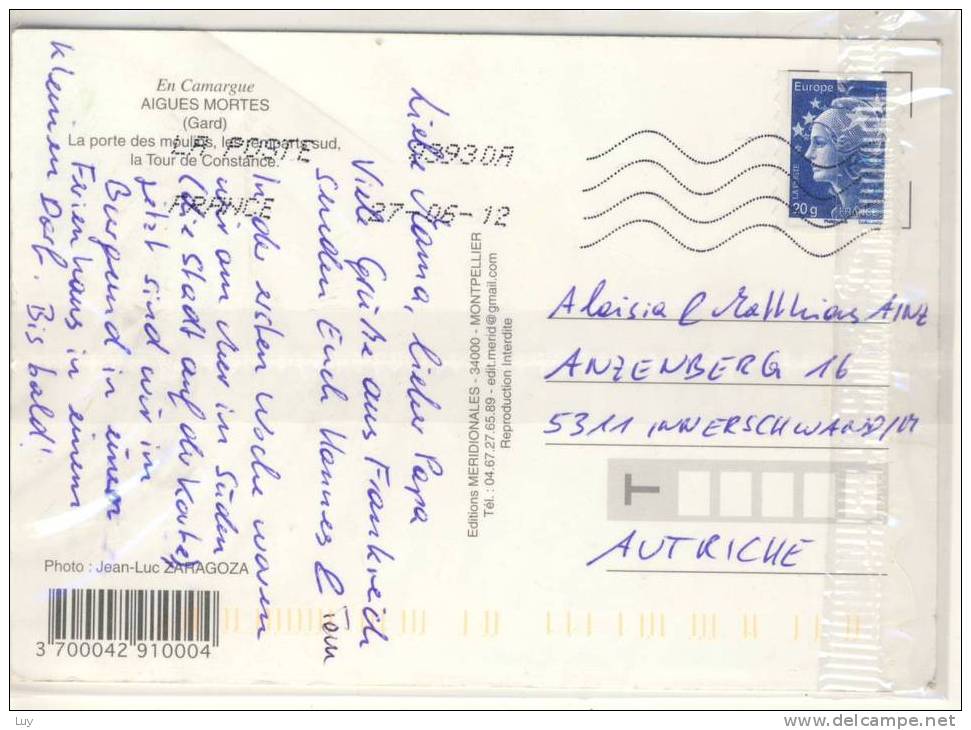 En Camargue
AIGUES MORTES
(Gard)
La porte des moulins, les remparts sud,
la Tour de Constance.
LA POSTE
03930A
FRANCE
27-06-12
Europe
LA POSTE
20g
FRANCE
Liebe Mama, lieber Papa
Viele Grüße aus Frankreich
senden Euch Hannes &
In der ersten Woche waren
wir am Meer im Süden
(die Stadt auf der Karte)
jetzt sind wir in
Burgund in einem
Ferienhaus in einem
kleinen Dorf. Bis bald!
Editions MERIDIONALES - 34000 - MONTPELLIER
Tél. : 04.67.27.65.89 - edit.merid@gmail.com
Reproduction Interdite
Aloisia & Matthias AINZ
ANZENBERG 16
5311 INNERSCHWAND/M
T
AUTRICHE
Photo : Jean-Luc ZARAGOZA
3 700042 910004
Luy
www.delcampe.net